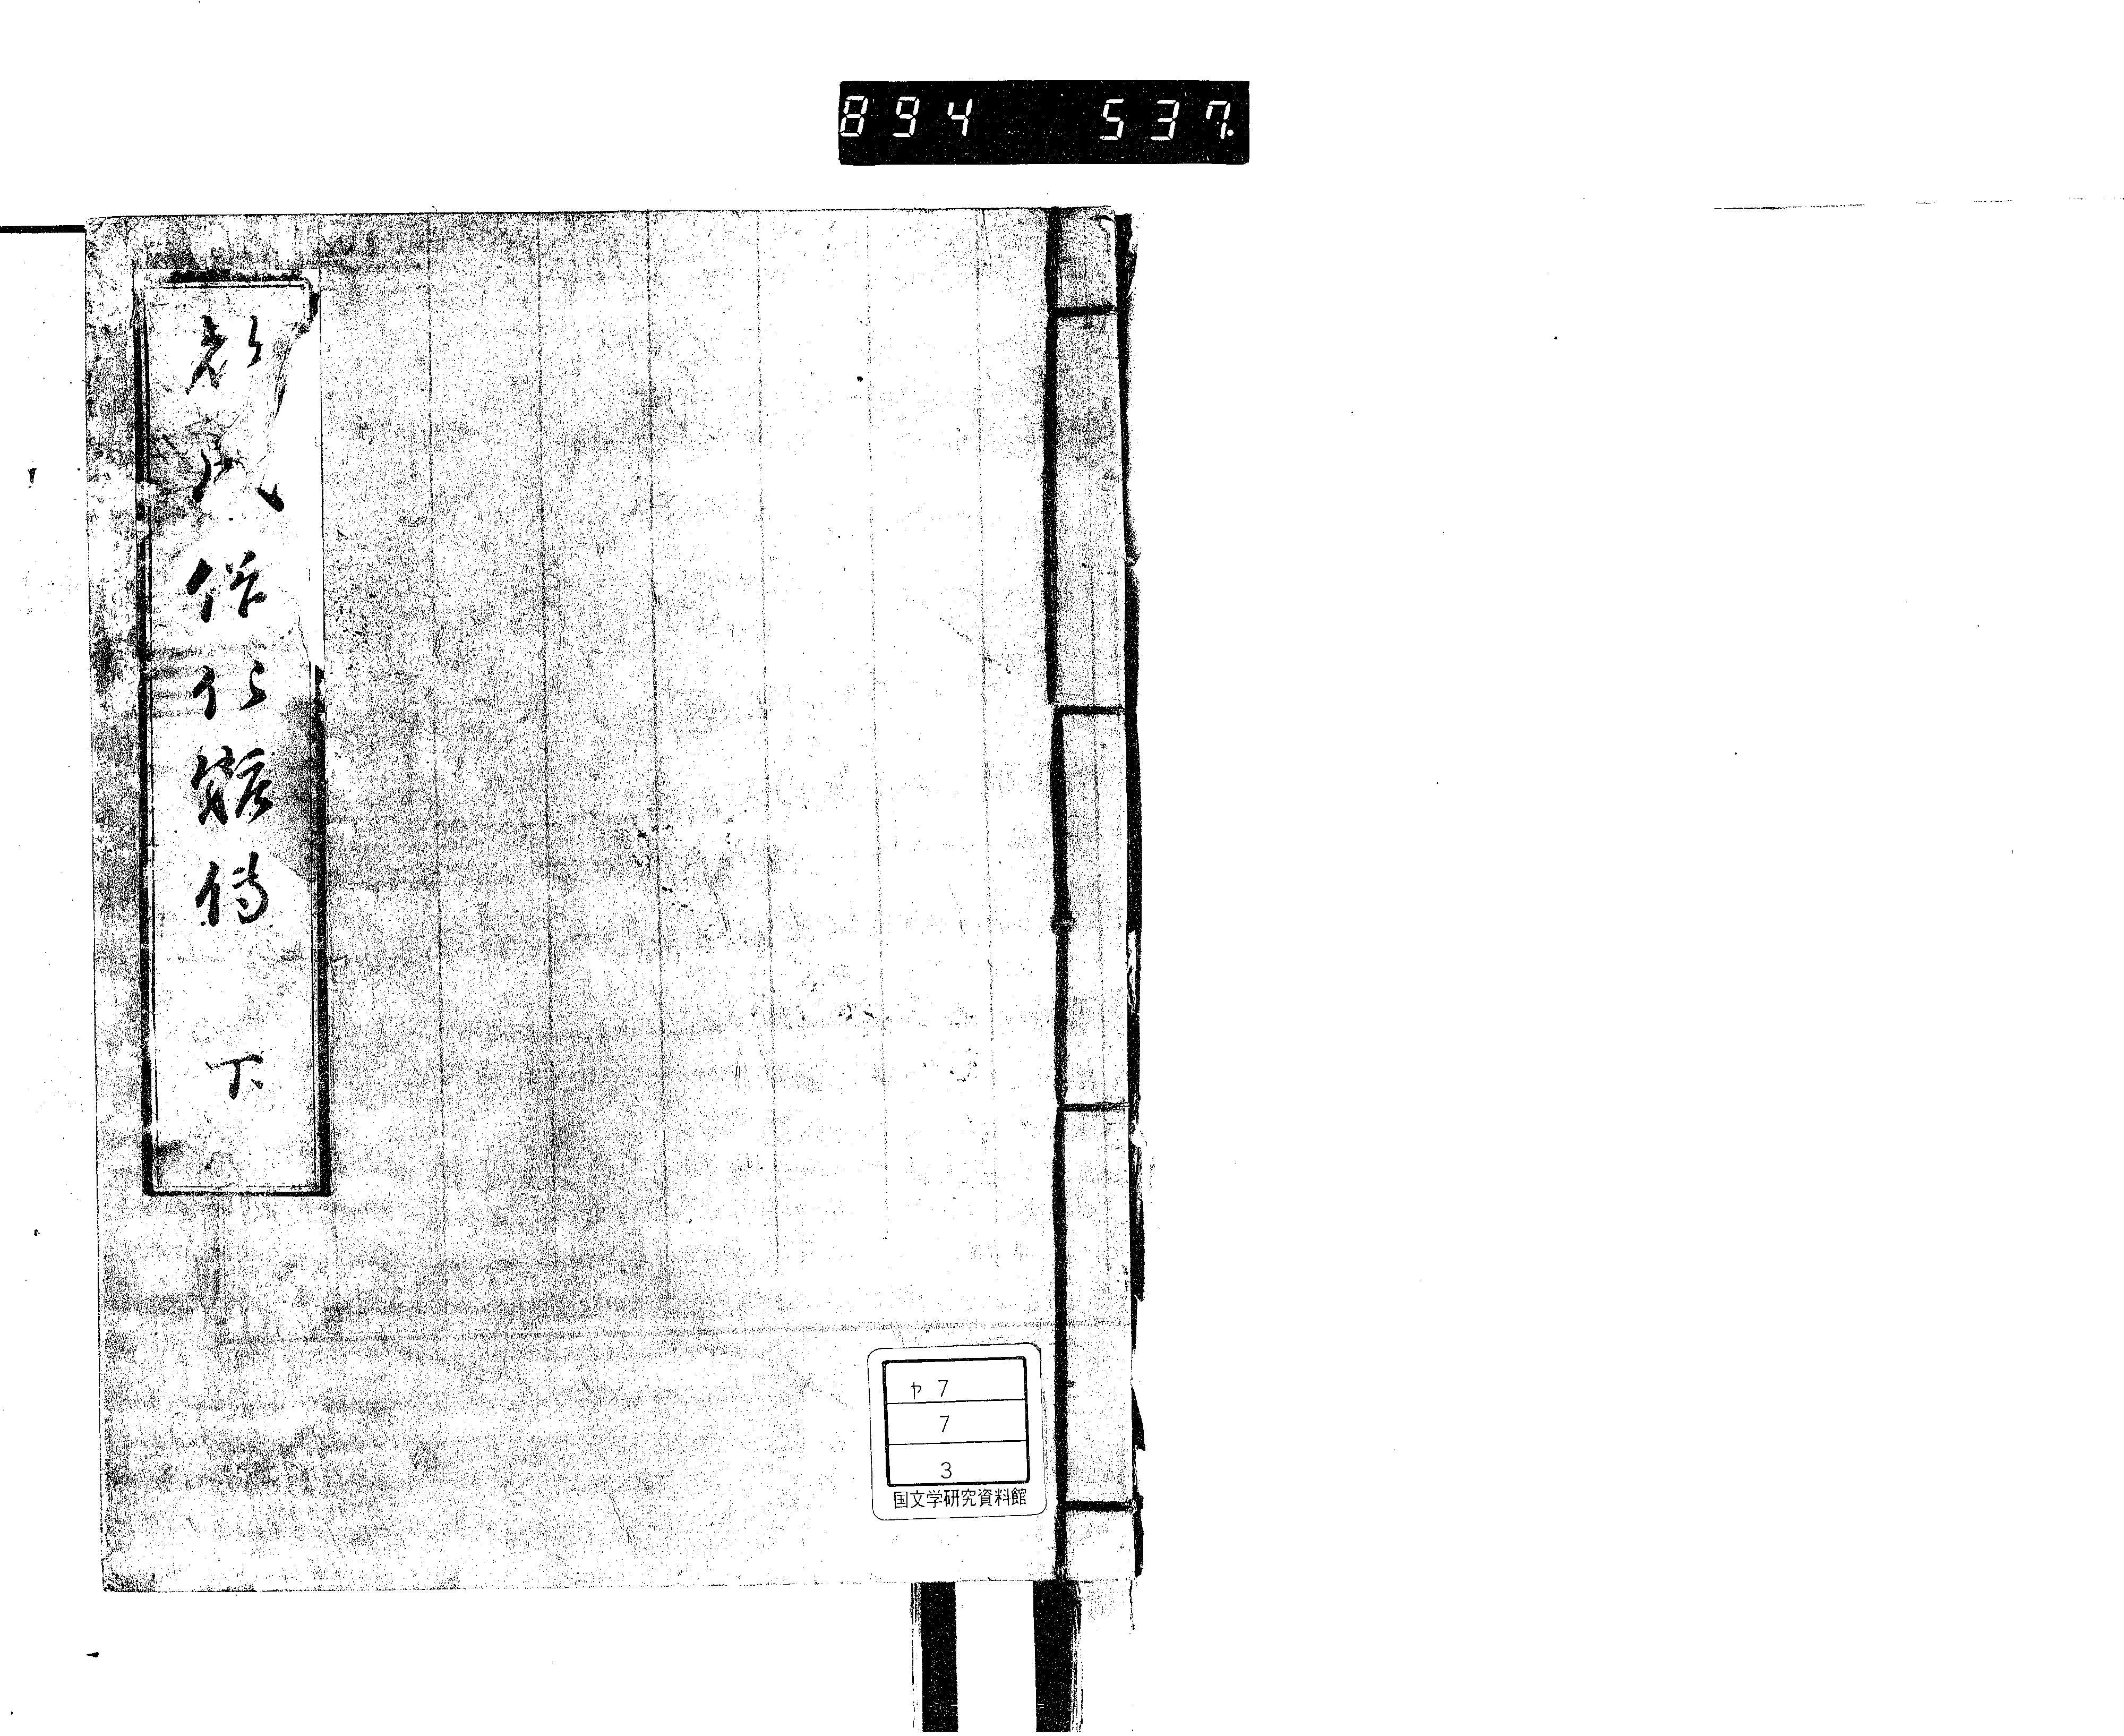 894 537.
都風俗化粧傳 下
ヤ7
7
3
国文学研究資料館